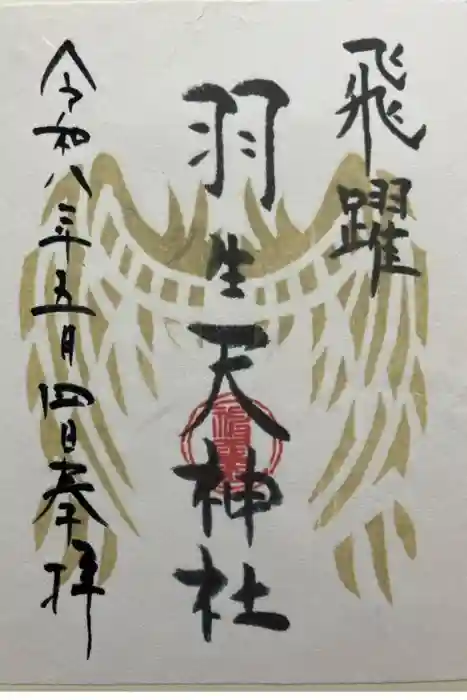 飛躍
羽生天神社
令和八年五月四日奉拝